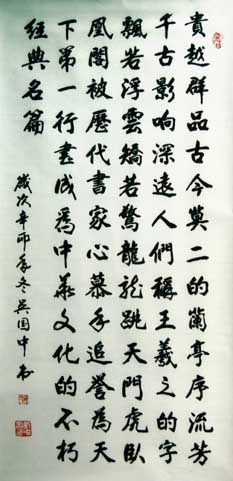 貴越群品古今莫二的蘭亭序流芳
千古影响深遠人們稱王羲之的字
飄若浮雲矯若驚龍龍跳天門虎臥
凰閣被歷代書家心慕手追譽為天
下第一行書成爲中華文化的不朽
經典名篇
歲次辛卯年冬吴国中书